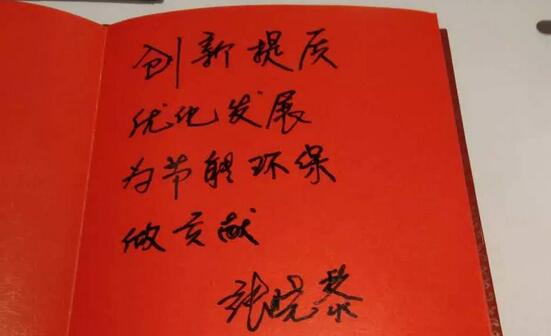 创新提质
优化发展
为节能环保
做贡献
张晓黎